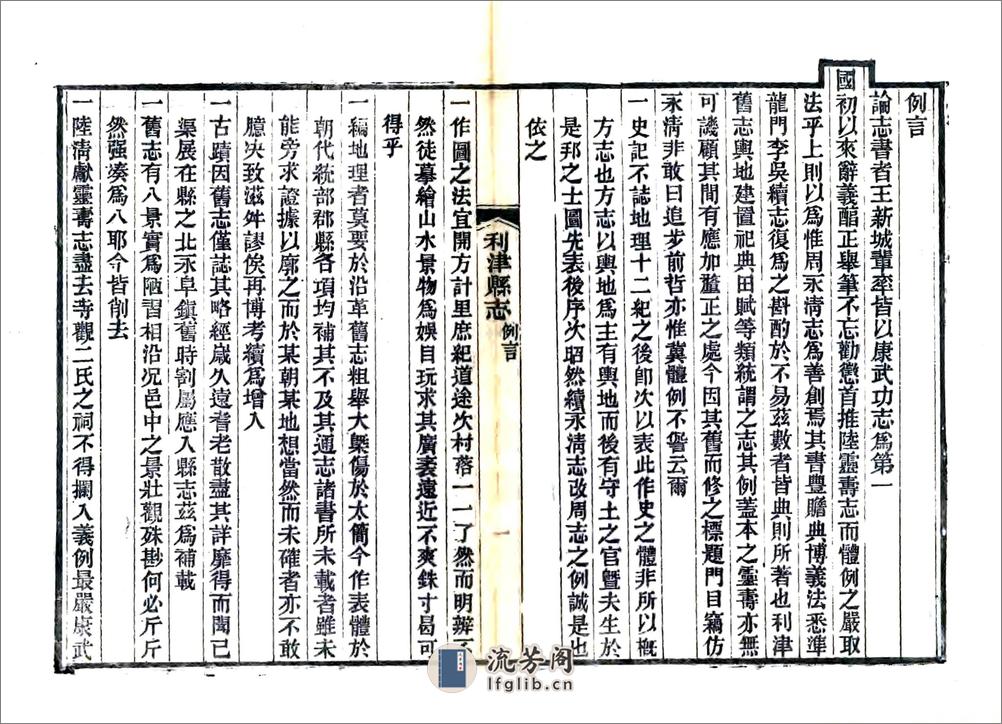 例言
論志書者王新城輩率皆以康武功志爲第一
國初以來辭義醕正舉筆不忘勸懲首推陸靈壽志而體例之嚴取
法乎上則以爲惟周永淸志爲善創焉其書豐贍典博義法悉準
龍門李吳續志復爲之斟酌於不易茲數者皆典則所著也利津
舊志輿地建置祀典田賦等類統謂之志其例蓋本之靈壽亦無
可譏顧其間有應加釐正之處今因其舊而修之標題門目竊仿
永淸非敢曰追步前哲亦惟冀體例不訾云爾
一史記不誌地理十二紀之後卽次以表此作史之體非所以槪
方志也方志以輿地爲主有輿地而後有守土之官曁夫生於
是邦之士圖先表後序次昭然續永淸志改周志之例誠是也
依之
利津縣志
例言
一
一作圖之法宜開方計里庶紀道途次村落一一了然而明辨不
然徒摹繪山水景物爲娛目玩求其廣袤遠近不爽銖寸曷可
得乎
一編地理者莫要於沿革舊志粗舉大槩傷於太簡今作表體於
朝代統部郡縣各項均補其不及其通志諸書所未載者雖未
能旁求證據以廓之而於某朝某地想當然而未確者亦不敢
臆决致滋舛謬俟再博考續爲增入
一古蹟因舊志僅誌其略經歲久遠耆老散盡其詳靡得而聞已
渠展在縣之北永阜鎭舊時割屬應入縣志茲爲補載
一舊志有八景實爲陋習相沿况邑中之景壯觀殊尠何必斤斤
然强湊爲八耶今皆削去
一陸淸獻靈壽志盡去寺觀二氏之祠不得攔入義例最嚴康武
流芳阁
lfglib.cn